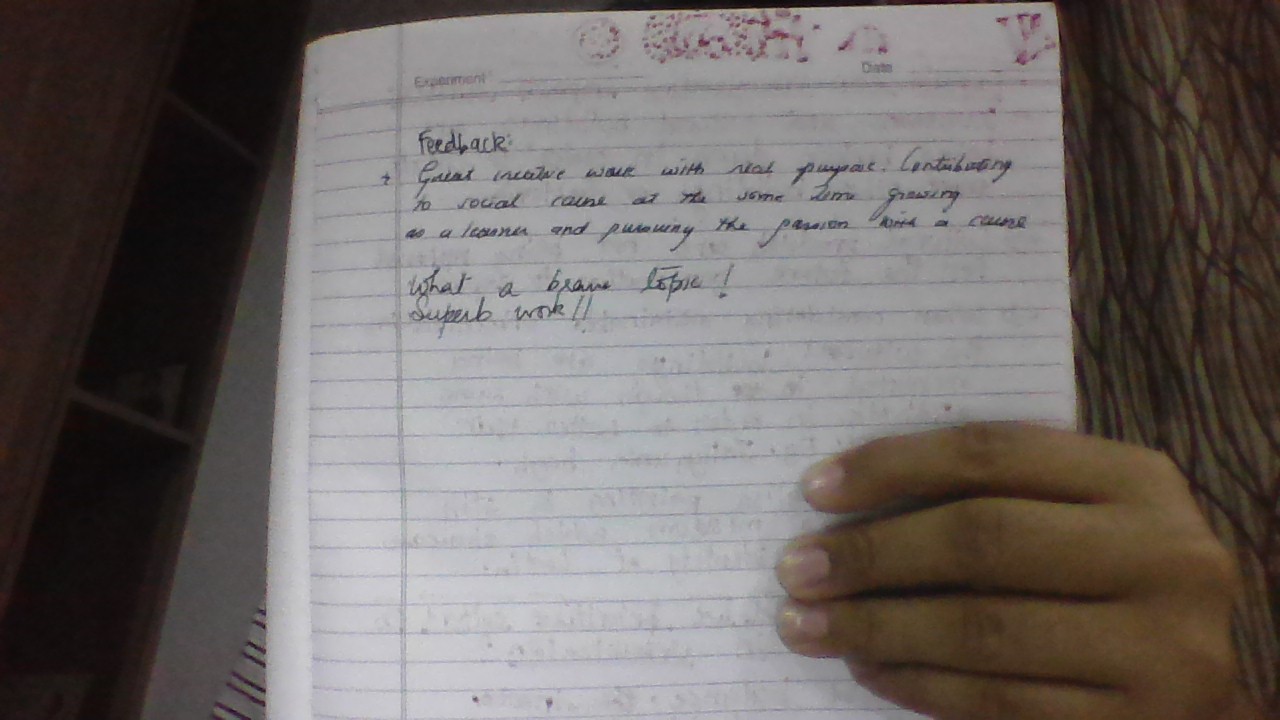 Experiment
Date
Feedback:
Great creative work with real purpose. Contributing
to social cause at the same time growing
as a learner and pursuing the passion with a cause
What a brave topic!
Superb work!!